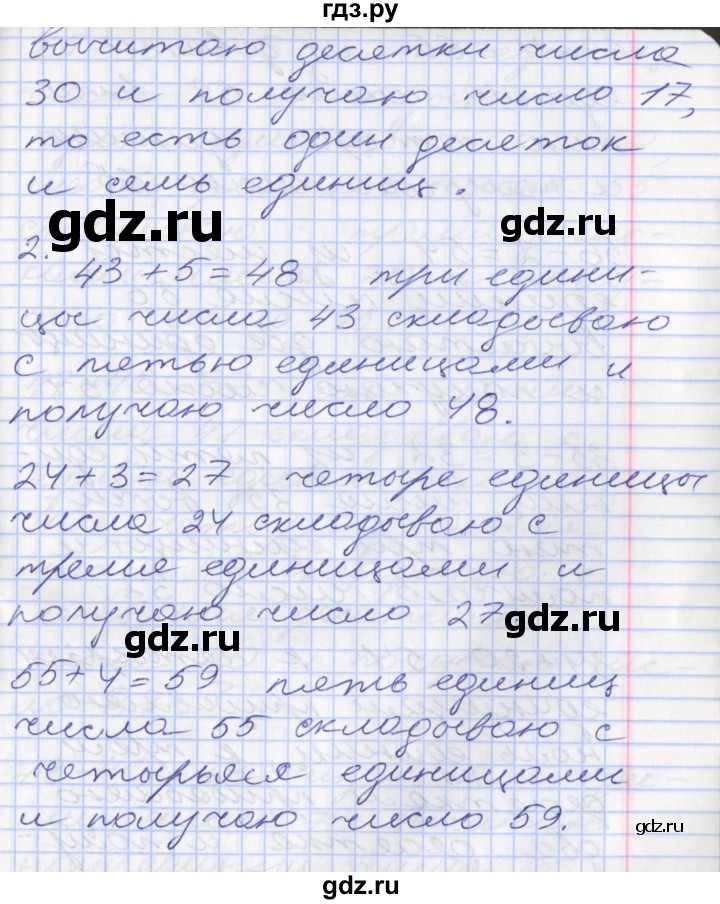 гдз.ру
вычитаю десятки числа
30 и получаю число 17,
то есть один десяток
и семь единиц.
gdz.ru
gdz.ru
2.
43 + 5 = 48 три едини-
цы числа 43 складываю
с пятью единицами и
получаю число 48.
24 + 3 = 27 четыре единицы
числа 24 складываю с
тремя единицами и
получаю число 27
gdz.ru
gdz.ru
55 + 4 = 59 пять единиц
числа 55 складываю с
четырьмя единицами
и получаю число 59.
gdz.ru
gdz.ru